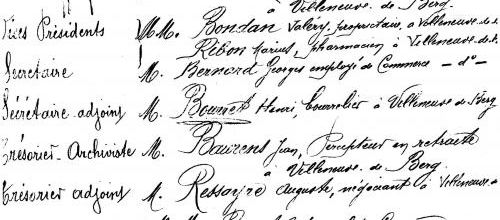 à Villeneuve de Berg
Vices Présidents MM. Bondan Valéry, propriétaire, à Villeneuve de
Ribon Marius, pharmacien à Villeneuve de
Secrétaire M. Bernard Georges employé de Commerce — d° —
Sécrétaire adjoint M. Bourret Henri, bourrelier à Villeneuve de Berg
Trésorier Archiviste M. Baurens Jean, Percepteur en retraite
à Villeneuve de Berg
Trésorier adjoint M. Ressayre auguste, négociant à Villeneuve